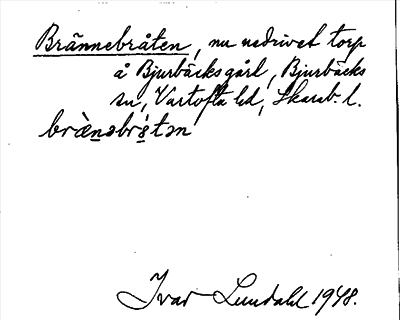 Brännebråten, nu nedrivet torp
å Bjurbäcks gård, Bjurbäcks
sn, Vartofta hd, Skarab. l.
bræ̀nəbrɔ́tən
Ivar Lundahl 1948.